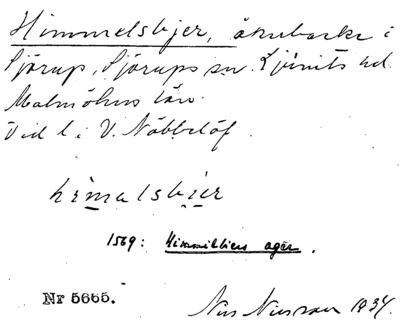 Himmelsbjer, åkerbacke i
Sjörup, Sjörups sn. Ljunits hd.
Malmöhus län.
Vid l. i V. Nöbbelöf.
himalsbjer
1569: Himmilbiers ager.
Nr 5665.
Nils Nilsson 1934.